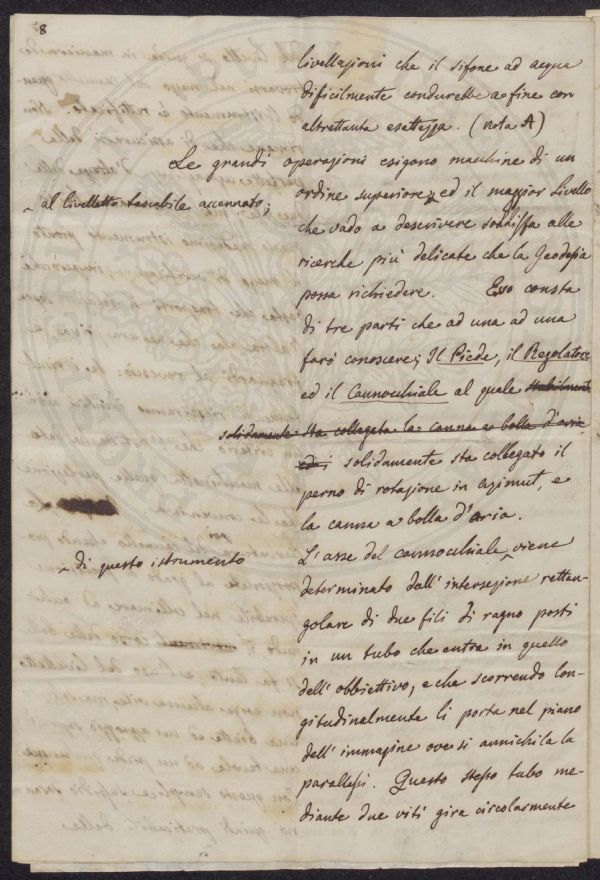 8
livellazioni che il sifone ad acqua
difficilmente condurebbe a fine con
altrettanta esattezza. (nota A)
Le grandi operazioni esigono machine di un
ordine superiore ^ ed il maggior Livello
^ al livelletto tascabile accennato;
che vado a descrivere soddisfa alle
ricerche più delicate che la Geodesia
possa richiedere. Esso consta
di tre parti che ad una ad una
farò conoscere; Il Piede, il Regolatore
ed il Cannocchiale al quale stabilmente
solidamente sta collegata la canna a bolla d'aria
ed i solidamente sta collegato il
perno di rotazione in azimut, e
la canna a bolla d'aria.
L'asse del cannocchiale ^ viene
^ di questo istrumento
determinato dall'intersezione rettan-
golare di due fili di ragno posti
in un tubo che entra in quello
dell'obbiettivo, e che scorrendo lon-
gitudinalmente li porta nel piano
dell'immagine ove si annichila la
parallassi. Questo stesso tubo me-
diante due viti gira circolarmente